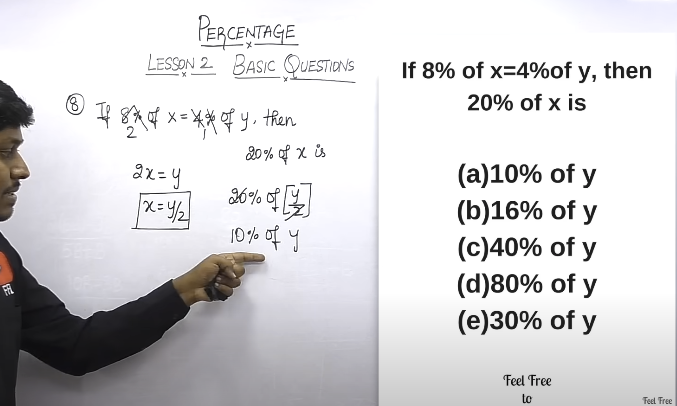 PERCENTAGE
LESSON 2 BASIC QUESTIONS
⑧ If 8% of x = 4% of y, then
2 1
20% of x is
2x = y
x = y/2
20% of [y/2]
10% of y
FFL
If 8% of x=4%of y, then
20% of x is
(a)10% of y
(b)16% of y
(c)40% of y
(d)80% of y
(e)30% of y
Feel Free
to
Feel Free